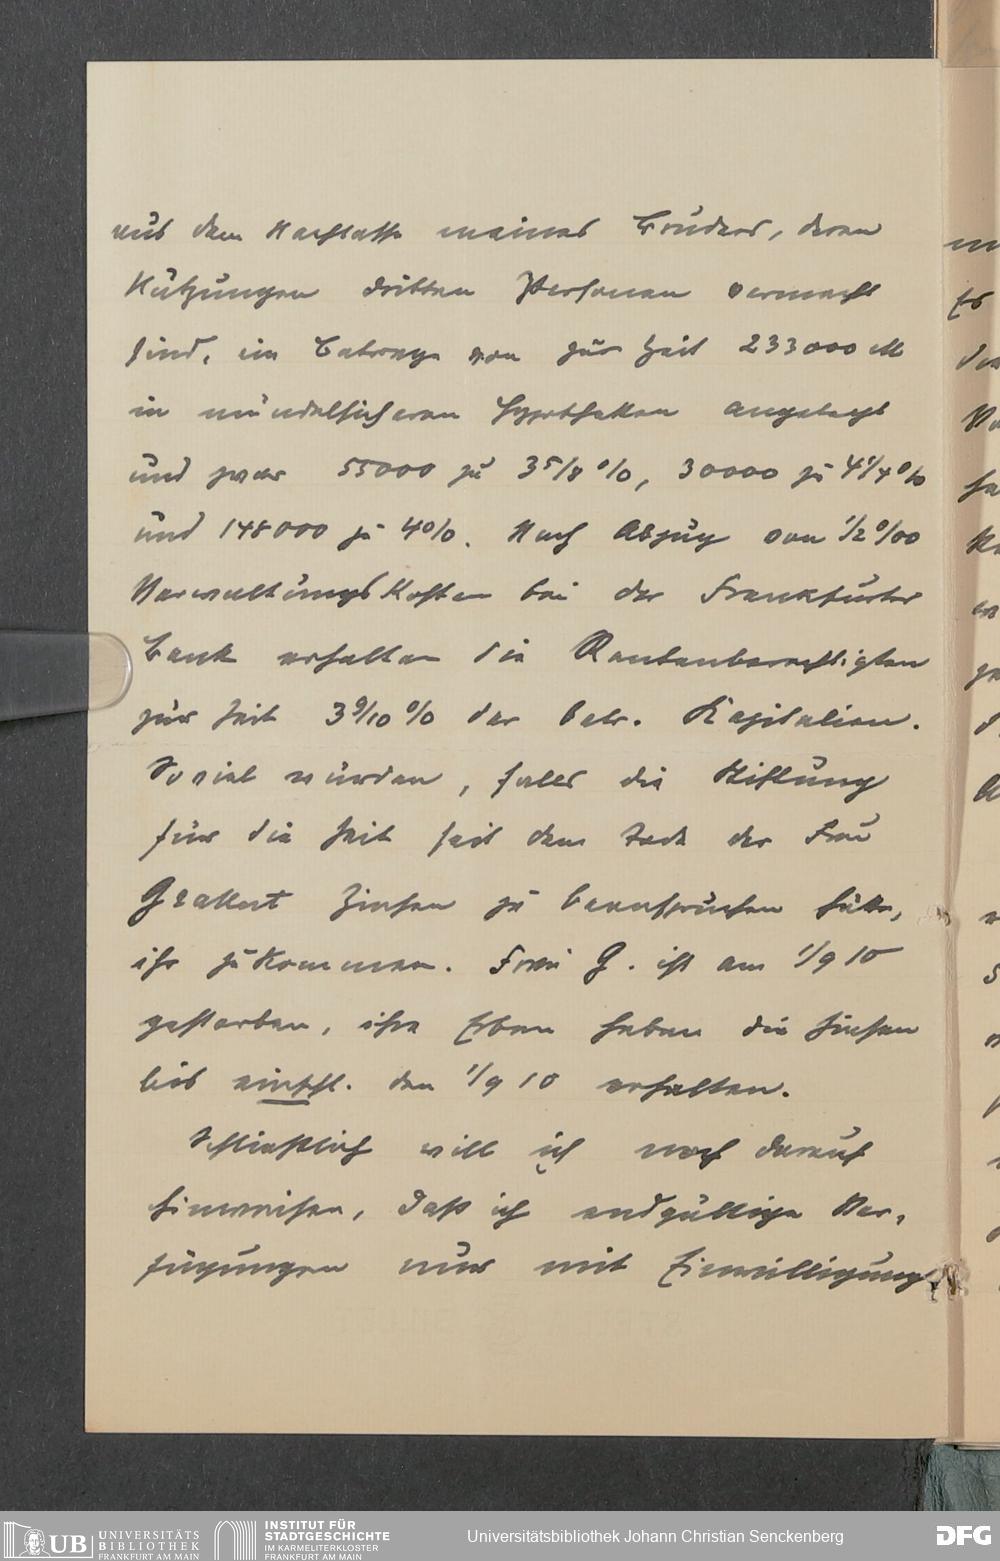 aus dem Nachlasse meines Bruders, deren
Nutzungen dritten Personen vermacht
sind, im Betrage von zur Zeit 233000 M
in mündelsicheren Hypotheken angelegt
und zwar 55000 zu 3 5/8 %, 30000 zu 4 1/4 %
und 148000 zu 4%. Nach Abzug von 1/2 %00
Verwaltungskosten bei der Frankfurter
Bank erhalten die Rentenberechtigten
zur Zeit 3 9/10 % der betr. Kapitalien.
Soviel würden, falls die Stiftung
für die Zeit seit dem Tode der Frau
Zinsen zu beanspruchen hätte,
ihr zukommen. Frau G. ist am 1/9 10
gestorben, ihre Erben haben die Zinsen
bis einschl. den 1/9 10 erhalten.
Schließlich will ich noch darauf
hinweisen, daß ich endgültige Ver-
fügungen nur mit Einwilligung
UB UNIVERSITÄTS
BIBLIOTHEK
FRANKFURT AM MAIN
INSTITUT FÜR
STADTGESCHICHTE
IM KARMELITERKLOSTER
FRANKFURT AM MAIN
Universitätsbibliothek Johann Christian Senckenberg
DFG